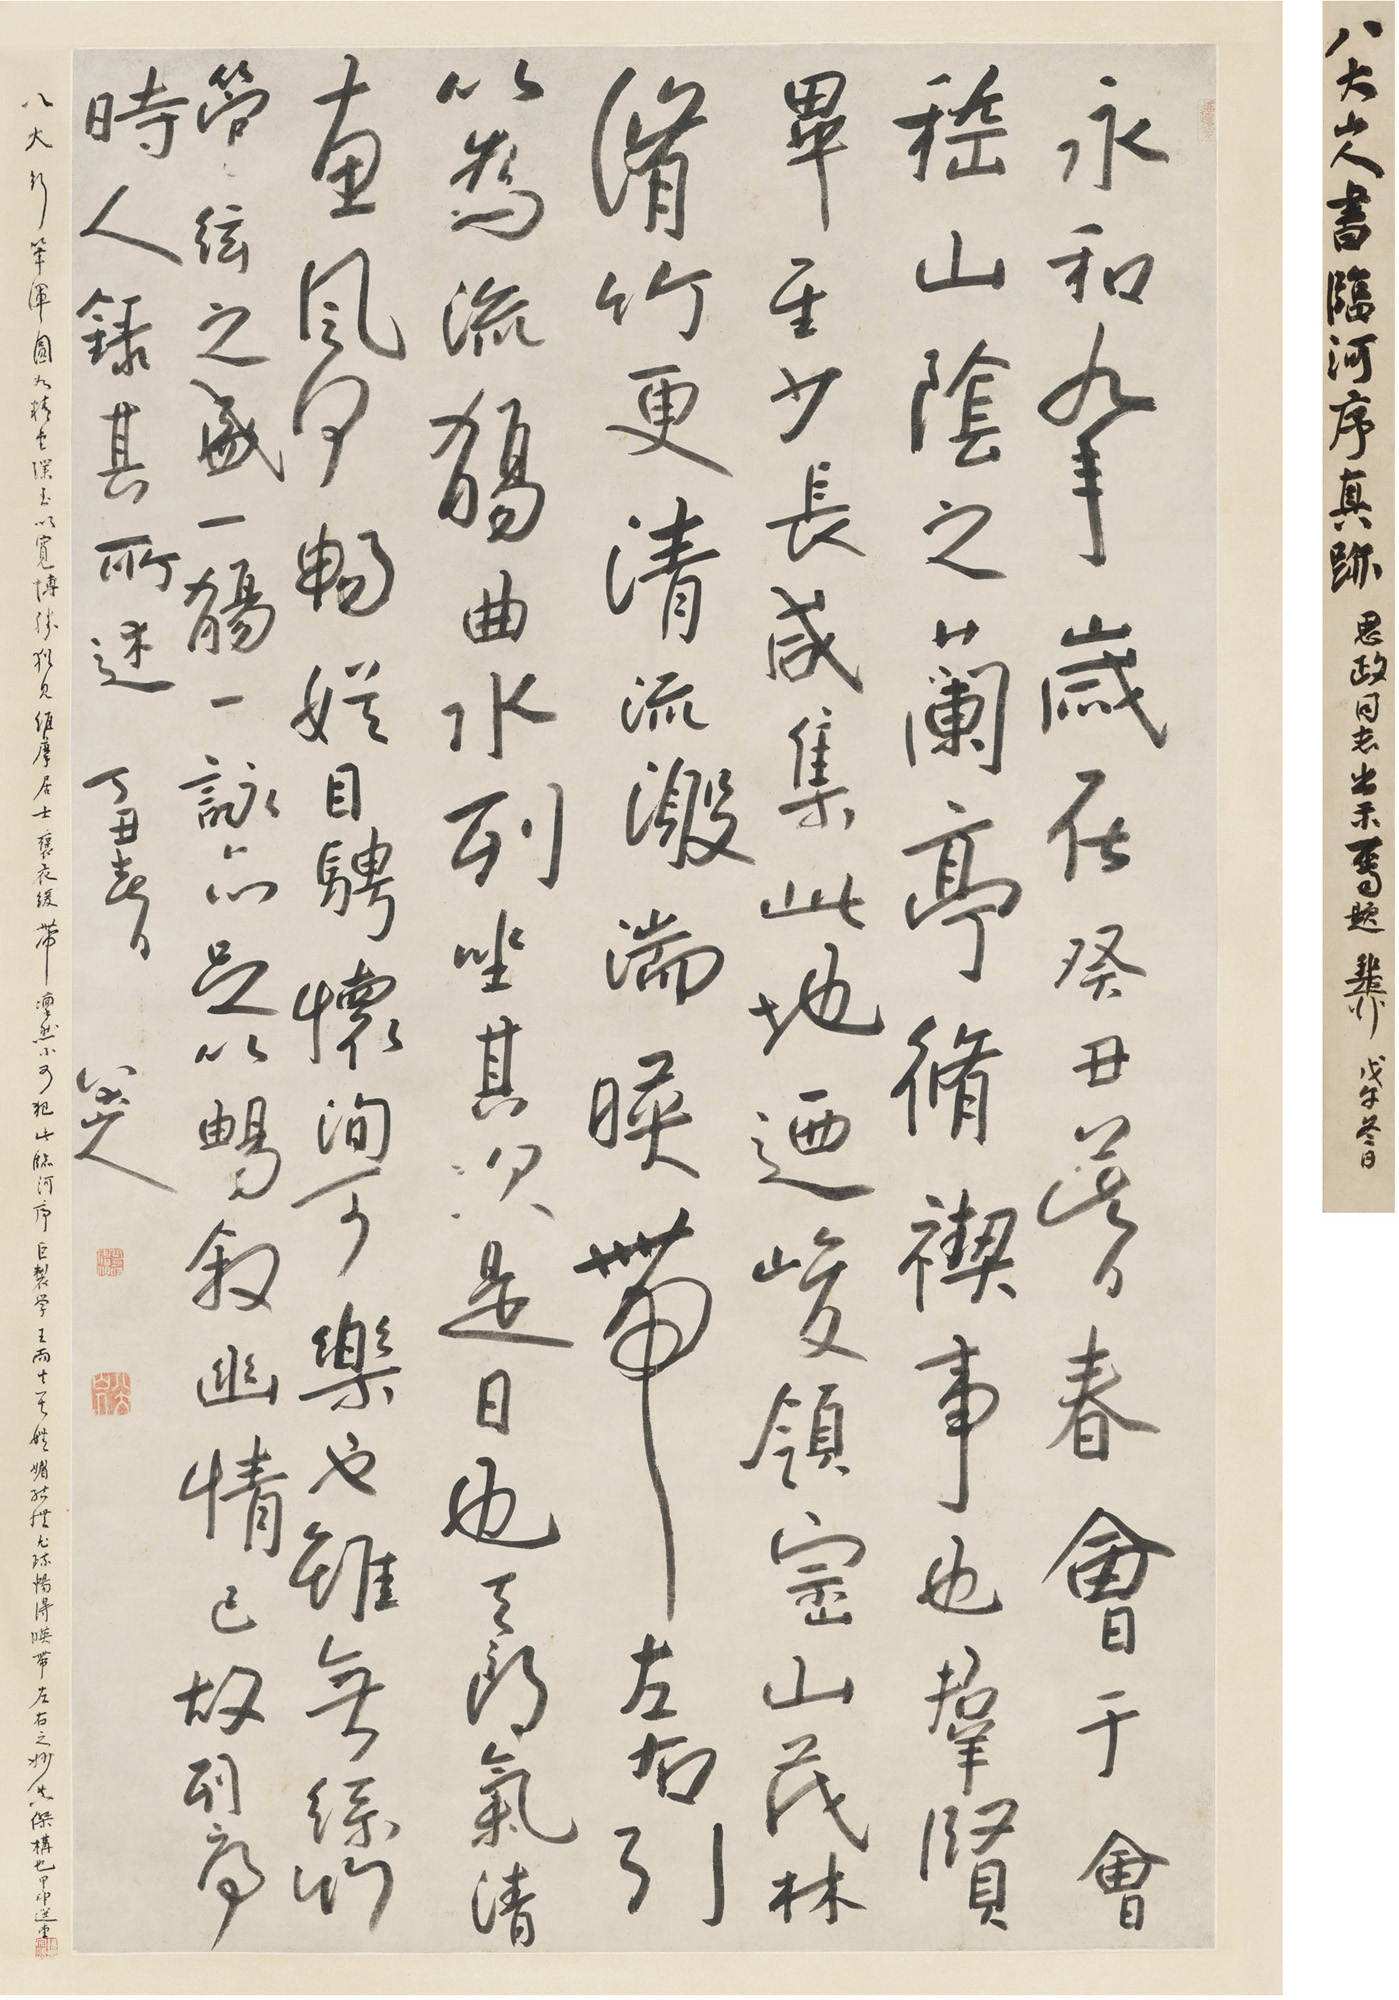 八大山人書臨河序真跡 思政同志出示属題 戊午冬日
永和九年歲在癸丑暮春會于會
稽山陰之蘭亭脩禊事也群賢
畢至少長咸集此地迺峻領崇山茂林
脩竹更清流激湍暎帶左右引
以為流觴曲水列坐其次是日也天朗氣清
惠風和暢娛目騁懷洵可樂也雖無絲竹
管弦之盛一觴一詠亦足以暢敘幽情已故列序
時人錄其所述 丁丑春日 八大山人
八大行筆渾圓 以寬博勝 維摩居士褒衣緩帶凛然不可犯此臨河序巨製学王而 暎帶左右之妙 傑構也甲申選堂